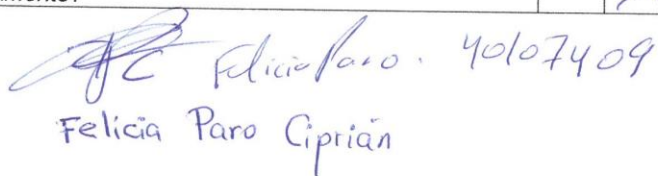 Felicia Paro. 40107409
Felicia Paro Ciprián